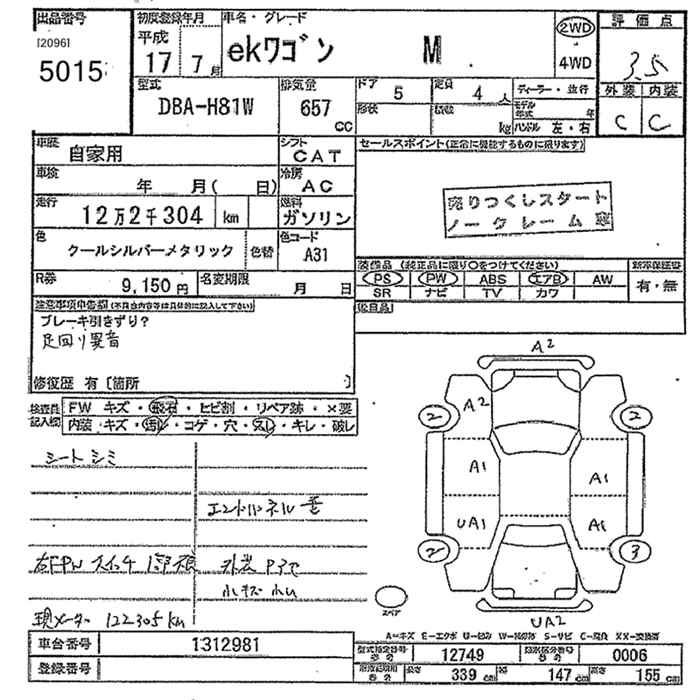 出品番号 初度登録年月 車名・グレード 評価点
[2096] 平成
5015 17 7月 ekワゴン M 2WD 3.5
4WD
型式 排気量 ドア 5 定員 4人 ディーラー・並行 外装 内装
DBA-H81W 657cc 形状 積数 kg モデル年式 年 C C
ハンドル 左・右
車歴 自家用 シフト CAT セールスポイント(正常に機能するものに限ります)
車検 年 月( 日) 冷房 AC
売りつくしスタート
ノークレーム
走行 12万2千304 km 燃料 ガソリン
色 クールシルバーメタリック 色替 色コード A31
装備品 (純正品に限り○をつけてください) 新車保証書
PS PW ABS エアB AW 有・無
SR ナビ TV カワ
R券 9,150円 名変期限 月 日
注意事項申告欄(不具合内容等は具体的に記入して下さい)
ブレーキ引きずり?
足回り異音
修復歴 有〔箇所 〕
検査員記入欄 FW キズ・飛石・ヒビ割・リペア跡・×要
内装・キズ・汚レ・コゲ・穴・スレ・キレ・破レ
シートシミ
右FPWスイッチ1部
小キズ
現メーター 122305km
A2
A2
2 2
A1 A1
UA1 A1
2 3
スペア
UA2
A-キズ E-エクボ U-凹み S-サビ
車台番号 1312981
登録番号
型式指定番号 12749 類別区分番号 0006
長さ 339cm 147cm 高さ 155cm